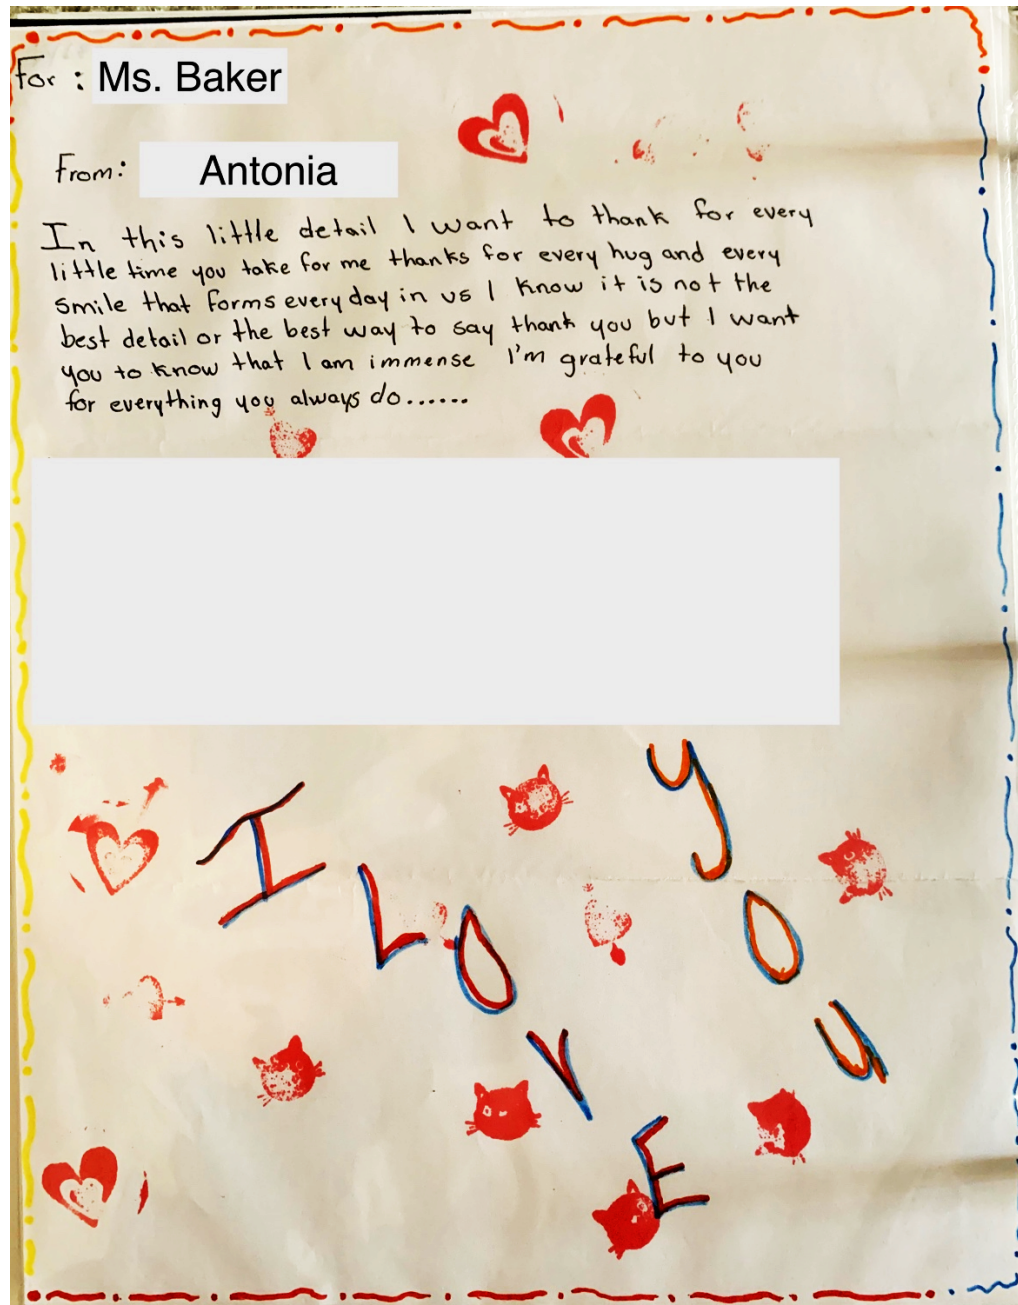 For : Ms. Baker
From: Antonia
In this little detail I want to thank for every
little time you take for me thanks for every hug and every
smile that forms every day in us I know it is not the
best detail or the best way to say thank you but I want
you to know that I am immense I'm grateful to you
for everything you always do......
I LOVE
you